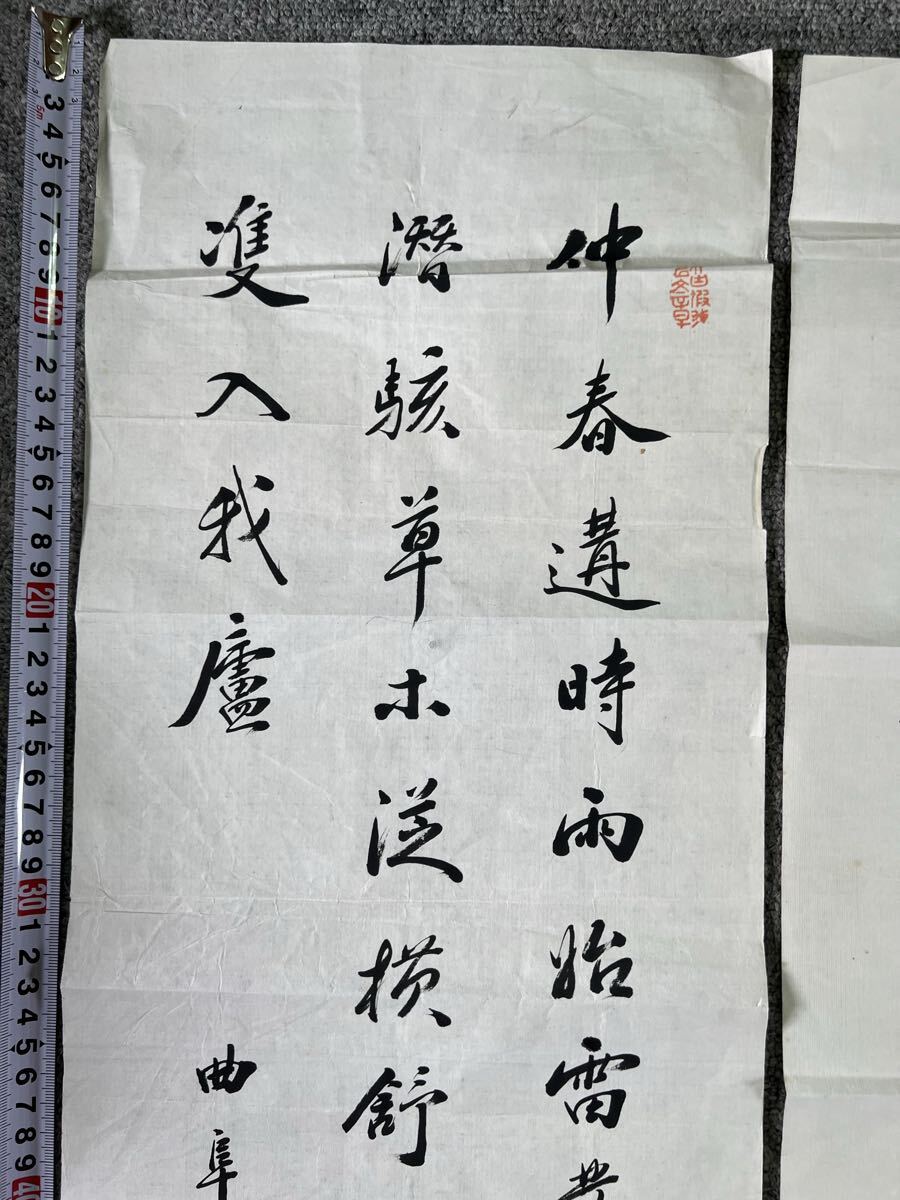 仲春遘時雨始雷
潛駭草木從橫舒
雙入我廬
曲阜
3 4 5 6 7 8 9 10 1 2 3 4 5 6 7 8 9 20 1 2 3 4 5 6 7 8 9 30 1 2 3 4 5 6 7 8 9 40
5m